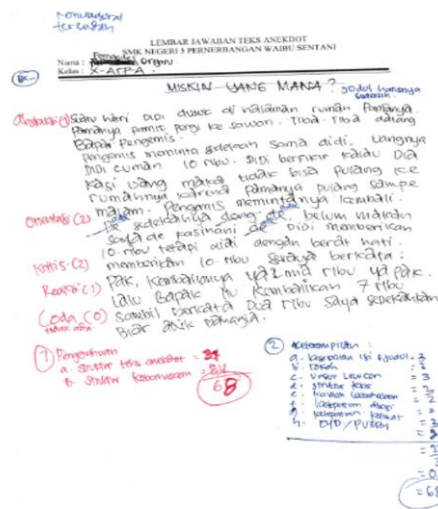 LEMBAR JAWABAN TEKS ANEKDOT
SMK NEGERI 5 PENERBANGAN WAIBU SENTANI
Nama : organ
Kelas : X-ATPA
MISKIN YANG MANA?
Suatu hari Didi duduk di halaman rumah Pamanya.
Pamanya pamit pergi ke sawon. Tiba-Tiba datang
Bapak Pengemis.
Pengemis meminta sedekah sama didi. uangnya
Didi cuman 10 ribu. Didi berfikir kalau Dia
kasi uang maka tidak bisa pulang ke
rumahnya karena pamanya pulang sampe
malam. Pengemis memintanya kembali.
sedekahnya dong de, belum makan
saya de kasihani de. Didi memberikan
10 ribu tetapi didi dengan berat hati.
memberikan 10 ribu Saraya berkata:
Pak, kembaliannya ya lima ribu ya Pak.
Lalu Bapak itu kembalikan 7 ribu
Sambil berkata Dua ribu saya sedekahkan
Biar adik bahagia.
Orientasi (2)
Kritis (2)
Reaksi (1)
Coda (0)
tidak ada
1 Pengetahuan
a. Struktur teks anekdot =
b. Struktur kebahasaan = 34
68
2 Keterampilan :
a. kesesuaian isi & judul = 3
b. tokoh
c. unsur Lewcon = 3
d. struktur teks
e. kaidah kebahasaan
f. ketepatan diksi
g. ketepatan kalimat
h. EYD / PUEBI